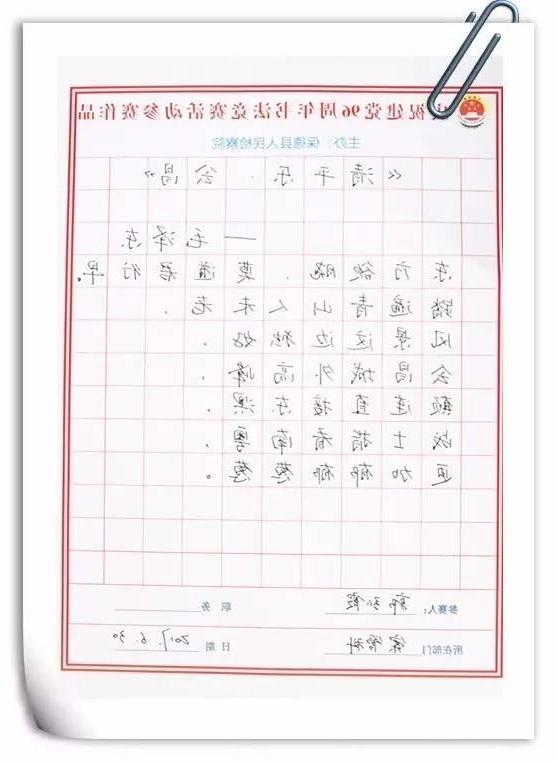 庆祝建党96周年书法竞赛活动参赛作品
主办：保德县人民检察院
《清平乐·会昌》
——毛泽东
东方欲晓，莫道君行早。
踏遍青山人未老，
风景这边独好。
会昌城外高峰，
颠连直接东溟。
战士指看南粤，
更加郁郁葱葱。
参赛人： 郭 霞 职务
所在部门 案管科 日期 2017.6.30